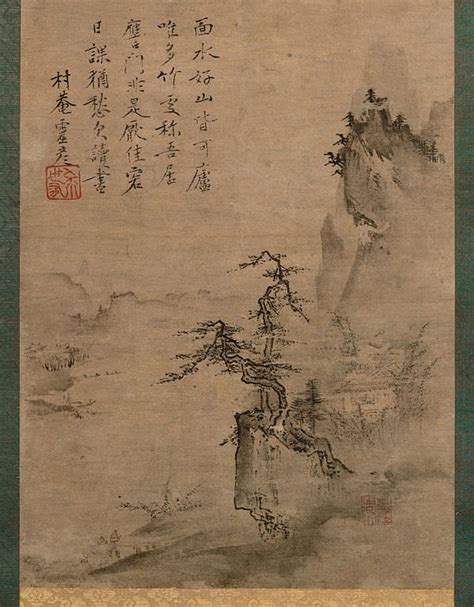 面水好山皆可廬
唯多竹處称吾居
壅門非是厭佳客
日課猶愁欠讀書
村菴靈彦